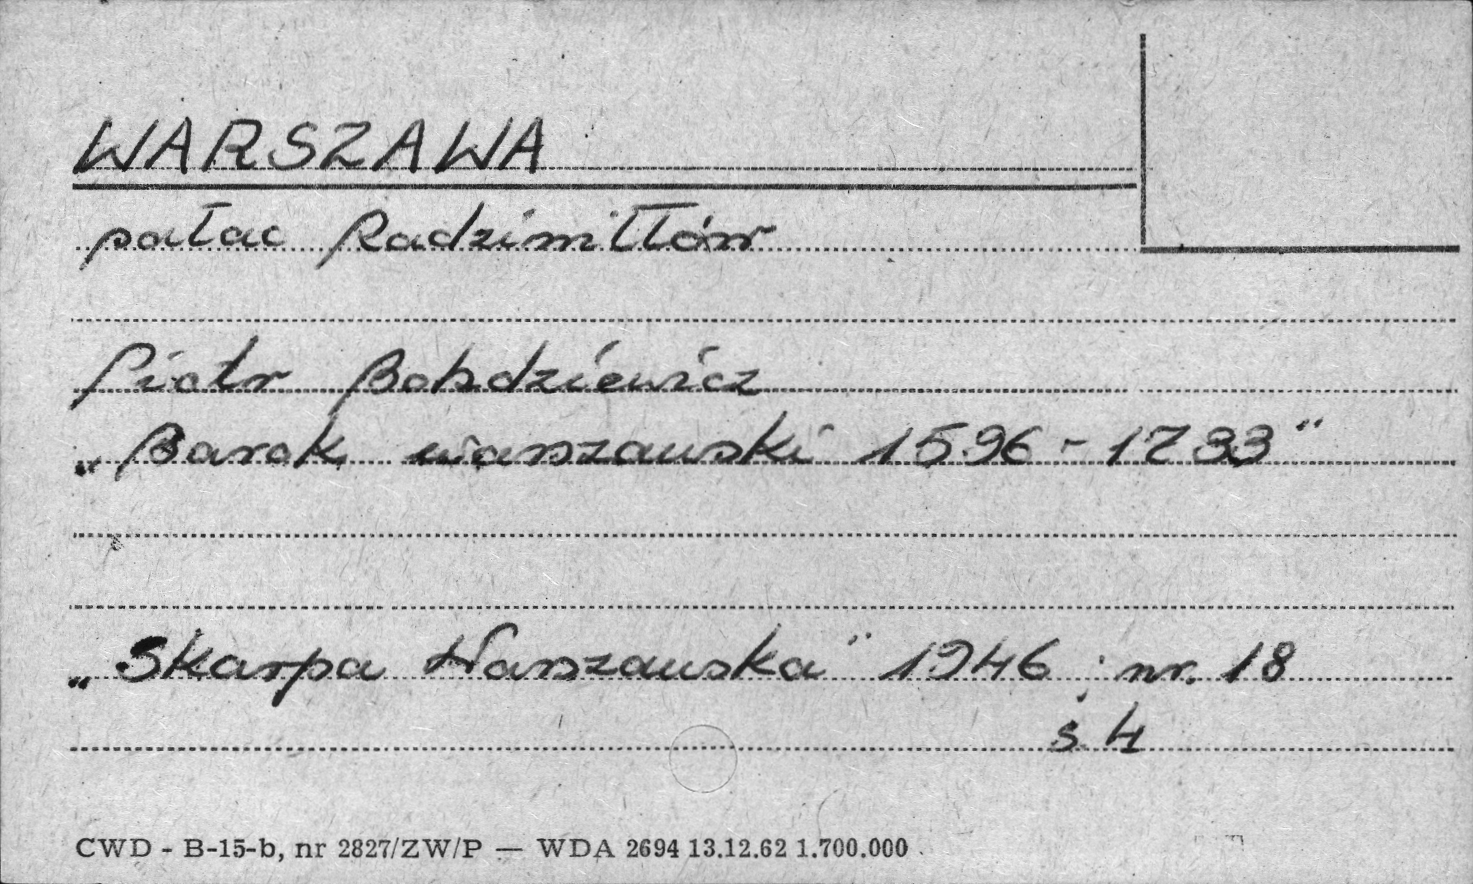 WARSZAWA
pałac Radziwiłłów
Piotr Bohdziewicz
„Barok warszawski 1596 - 1733"
„Skarpa Warszawska" 1946; nr. 18
s. 4
CWD - B-15-b, nr 2827/ZW/P — WDA 2694 13.12.62 1.700.000